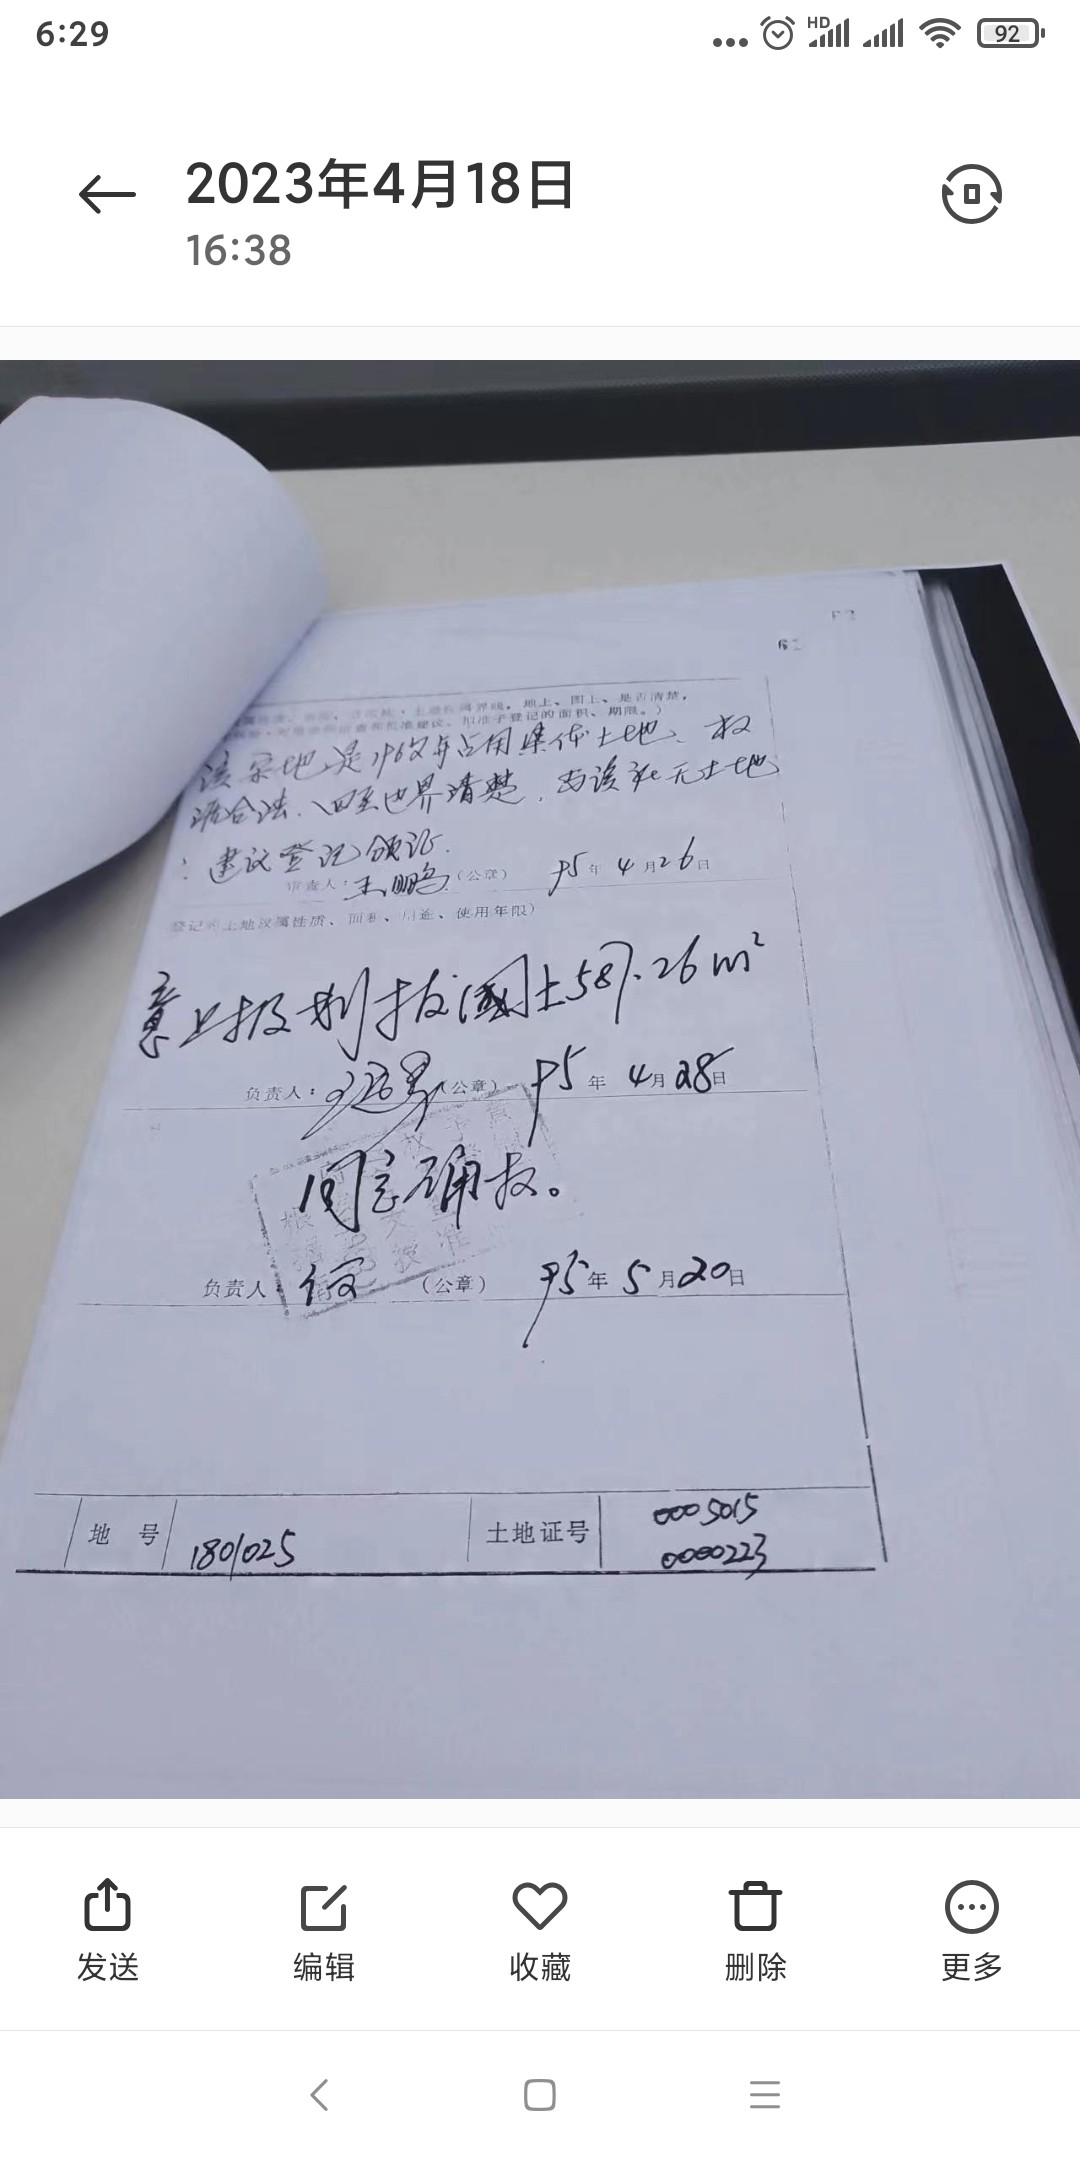 6:29
HD
92
2023年4月18日
16:38
地上、图上、是否清楚，
准予登记的面积、期限。）
该宗地是 年占用集体土地、权
源合法、四至 界清楚， 该 无土地
建议登记领证.
审查人：王鹏 （公章） 95年4月26日
登记的土地权属性质、面积、用途、使用年限）
意上报划拨国土587.26m²
负责人： （公章） 95年4月28日
同意确权。
负责人 （公章） 95年5月20日
地 号 180/025 土地证号 0005015
0000223
发送 编辑 收藏 删除 更多